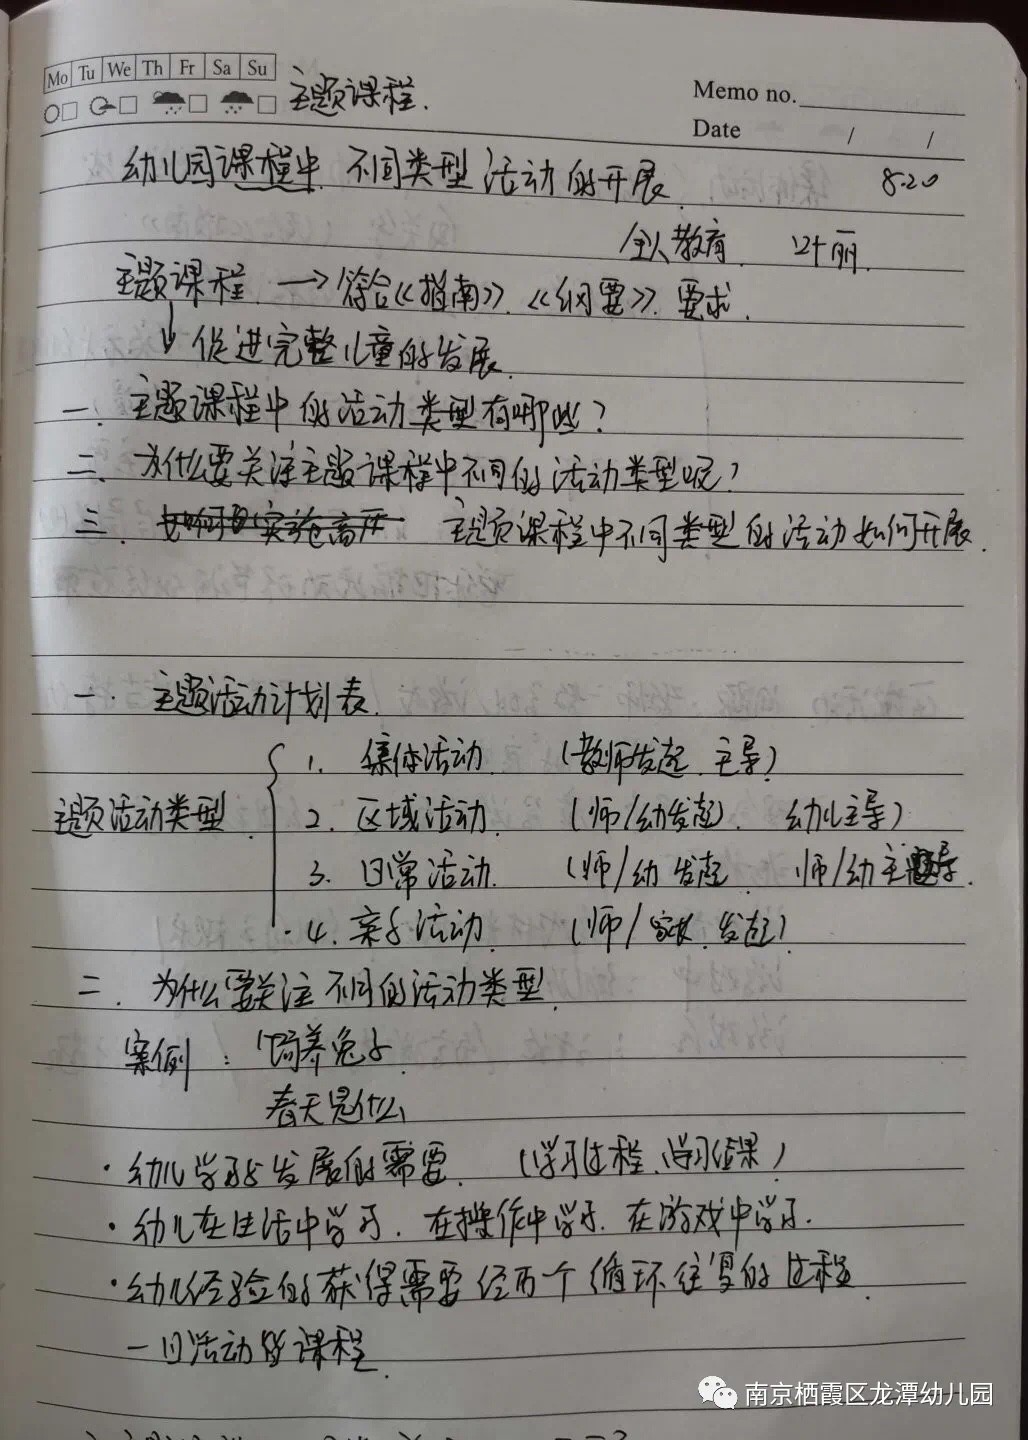 Mo Tu We Th Fr Sa Su
主题课程.
Memo no.
Date / /
幼儿园课程中 不同类型活动的开展 8.20
全人教育 叶丽
主题课程 → 符合《指南》《纲要》要求.
↓ 促进完整儿童的发展
一. 主题课程中的活动类型有哪些?
二. 为什么要关注主题课程中不同的活动类型呢?
三. 主题课程中不同类型的活动如何开展.
一. 主题活动计划表
主题活动类型
1. 集体活动 (教师发起、主导)
2. 区域活动 (师/幼发起、幼儿主导)
3. 日常活动. (师/幼发起 师/幼主导.
4. 亲子活动 (师/家长发起)
二. 为什么要关注不同的活动类型
案例: 饲养兔子
春天是什么
·幼儿学习与发展的需要. (学习过程、学习结果)
·幼儿在生活中学习. 在操作中学习. 在游戏中学习.
·幼儿经验的获得需要经历一个循环往复的过程
一日活动皆课程
南京栖霞区龙潭幼儿园